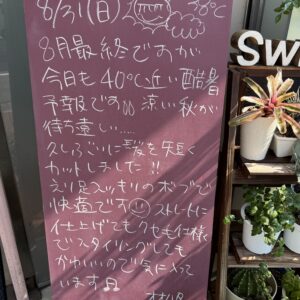 8/31(日) 38℃
8月最終ですが
今日も40℃近い酷暑
予報です 涼しい秋が
待ち遠しい....
久しぶりに髪を短く
カットしました!!
えり足スッキリのボブで
快適です ストレートに
仕上げてもクセも仕様
でスタイリングしても
かわいいので気に入って
います♬
SW